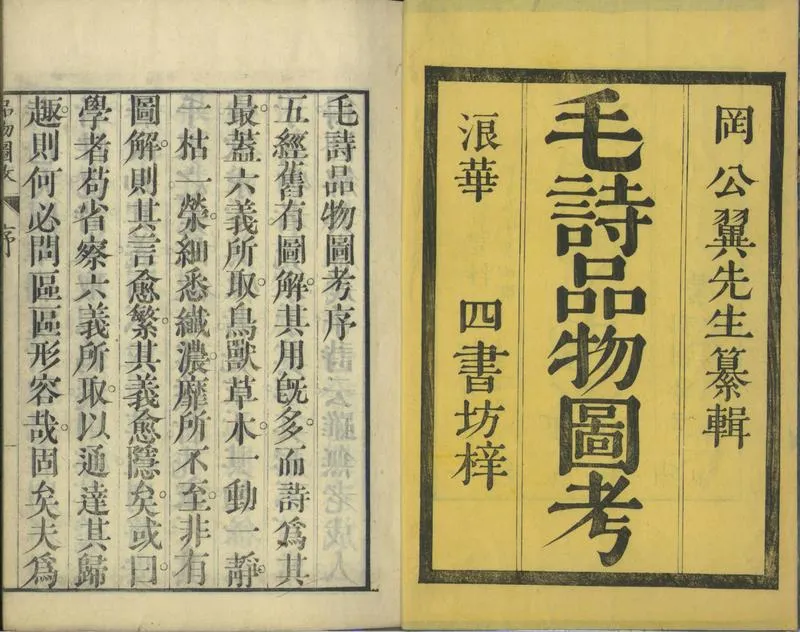 岡公翼先生纂輯
毛詩品物圖考
浪華 四書坊梓
毛詩品物圖考序
五經舊有圖解。其用旣多。而詩爲其
最。蓋六義所取。鳥獸草木。一動一靜。
一枯一榮。細悉纖濃。靡所不至。非有
圖解。則其言愈繁。其義愈隱矣。或曰
學者苟省察六義所取。以通達其歸
趣。則何必問區區形容哉。固矣夫爲
品物圖攷 序